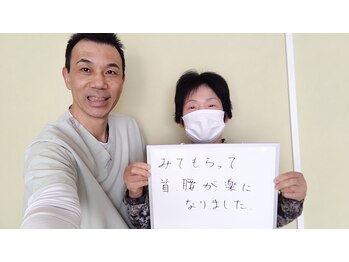 みてもらって
首、腰が楽に
なりました。